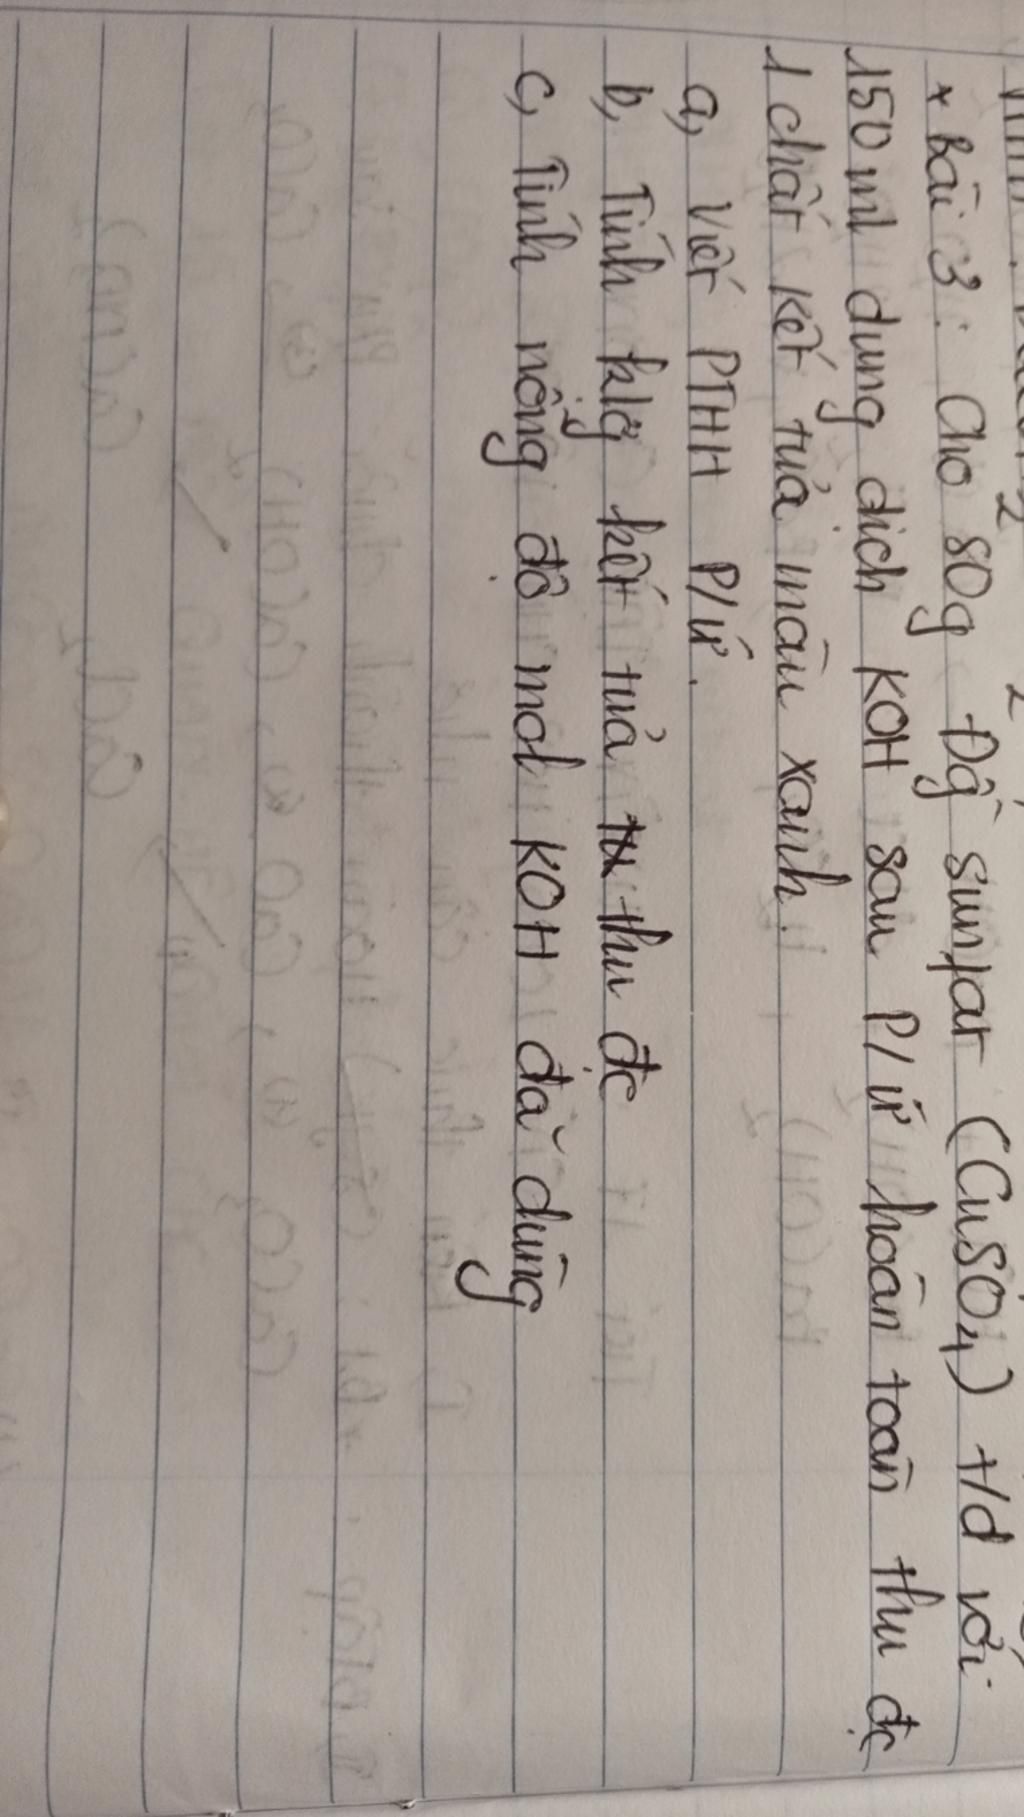 * Bài 3: Cho 80g Đồng sunfat (CuSO4) t/d với
150 ml dung dịch KOH sau P/ứ hoàn toàn thu đc
1 chất kết tủa màu xanh.
a, Viết PTHH P/ứ.
b, Tính klg kết tủa thu đc
c, Tính nồng độ mol KOH đã dùng